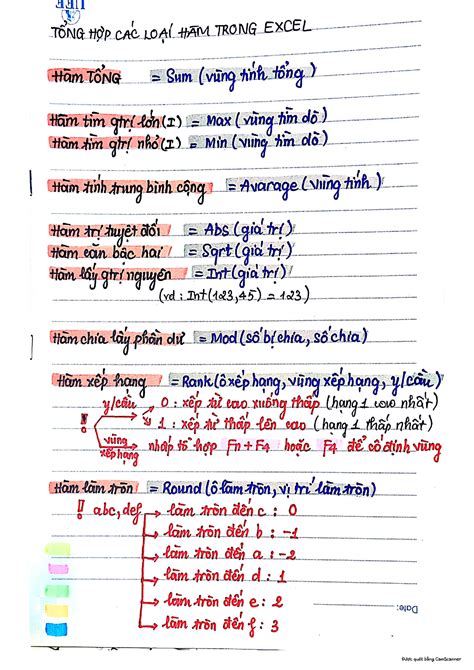 TỔNG HỢP CÁC LOẠI HÀM TRONG EXCEL
Hàm TỔNG = Sum (vùng tính tổng)
Hàm tìm gtrị lớn(I) = Max (vùng tìm dò)
Hàm tìm gtrị nhỏ(I) = Min (vùng tìm dò)
Hàm tính trung bình cộng = Avarage (vùng tính)
Hàm trị tuyệt đối = Abs (giá trị)
Hàm căn bậc hai = Sqrt (giá trị)
Hàm lấy gtrị nguyên = Int (giá trị)
(vd: Int(123,45) = 123)
Hàm chia lấy phần dư = Mod (số bị chia, số chia)
Hàm xếp hạng = Rank (ô xếp hạng, vùng xếp hạng, y/cầu)
y/cầu → 0 : xếp từ cao xuống thấp (hạng 1 cao nhất)
! → 1 : xếp từ thấp lên cao (hạng 1 thấp nhất)
vùng xếp hạng → nhấp tổ hợp Fn + F4 hoặc F4 để cố định vùng
Hàm làm tròn = Round (ô làm tròn, vị trí làm tròn)
!! abc,def → làm tròn đến c : 0
→ làm tròn đến b : -1
→ làm tròn đến a : -2
→ làm tròn đến d : 1
→ làm tròn đến e : 2
→ làm tròn đến f : 3
Date:
Được quét bằng CamScanner